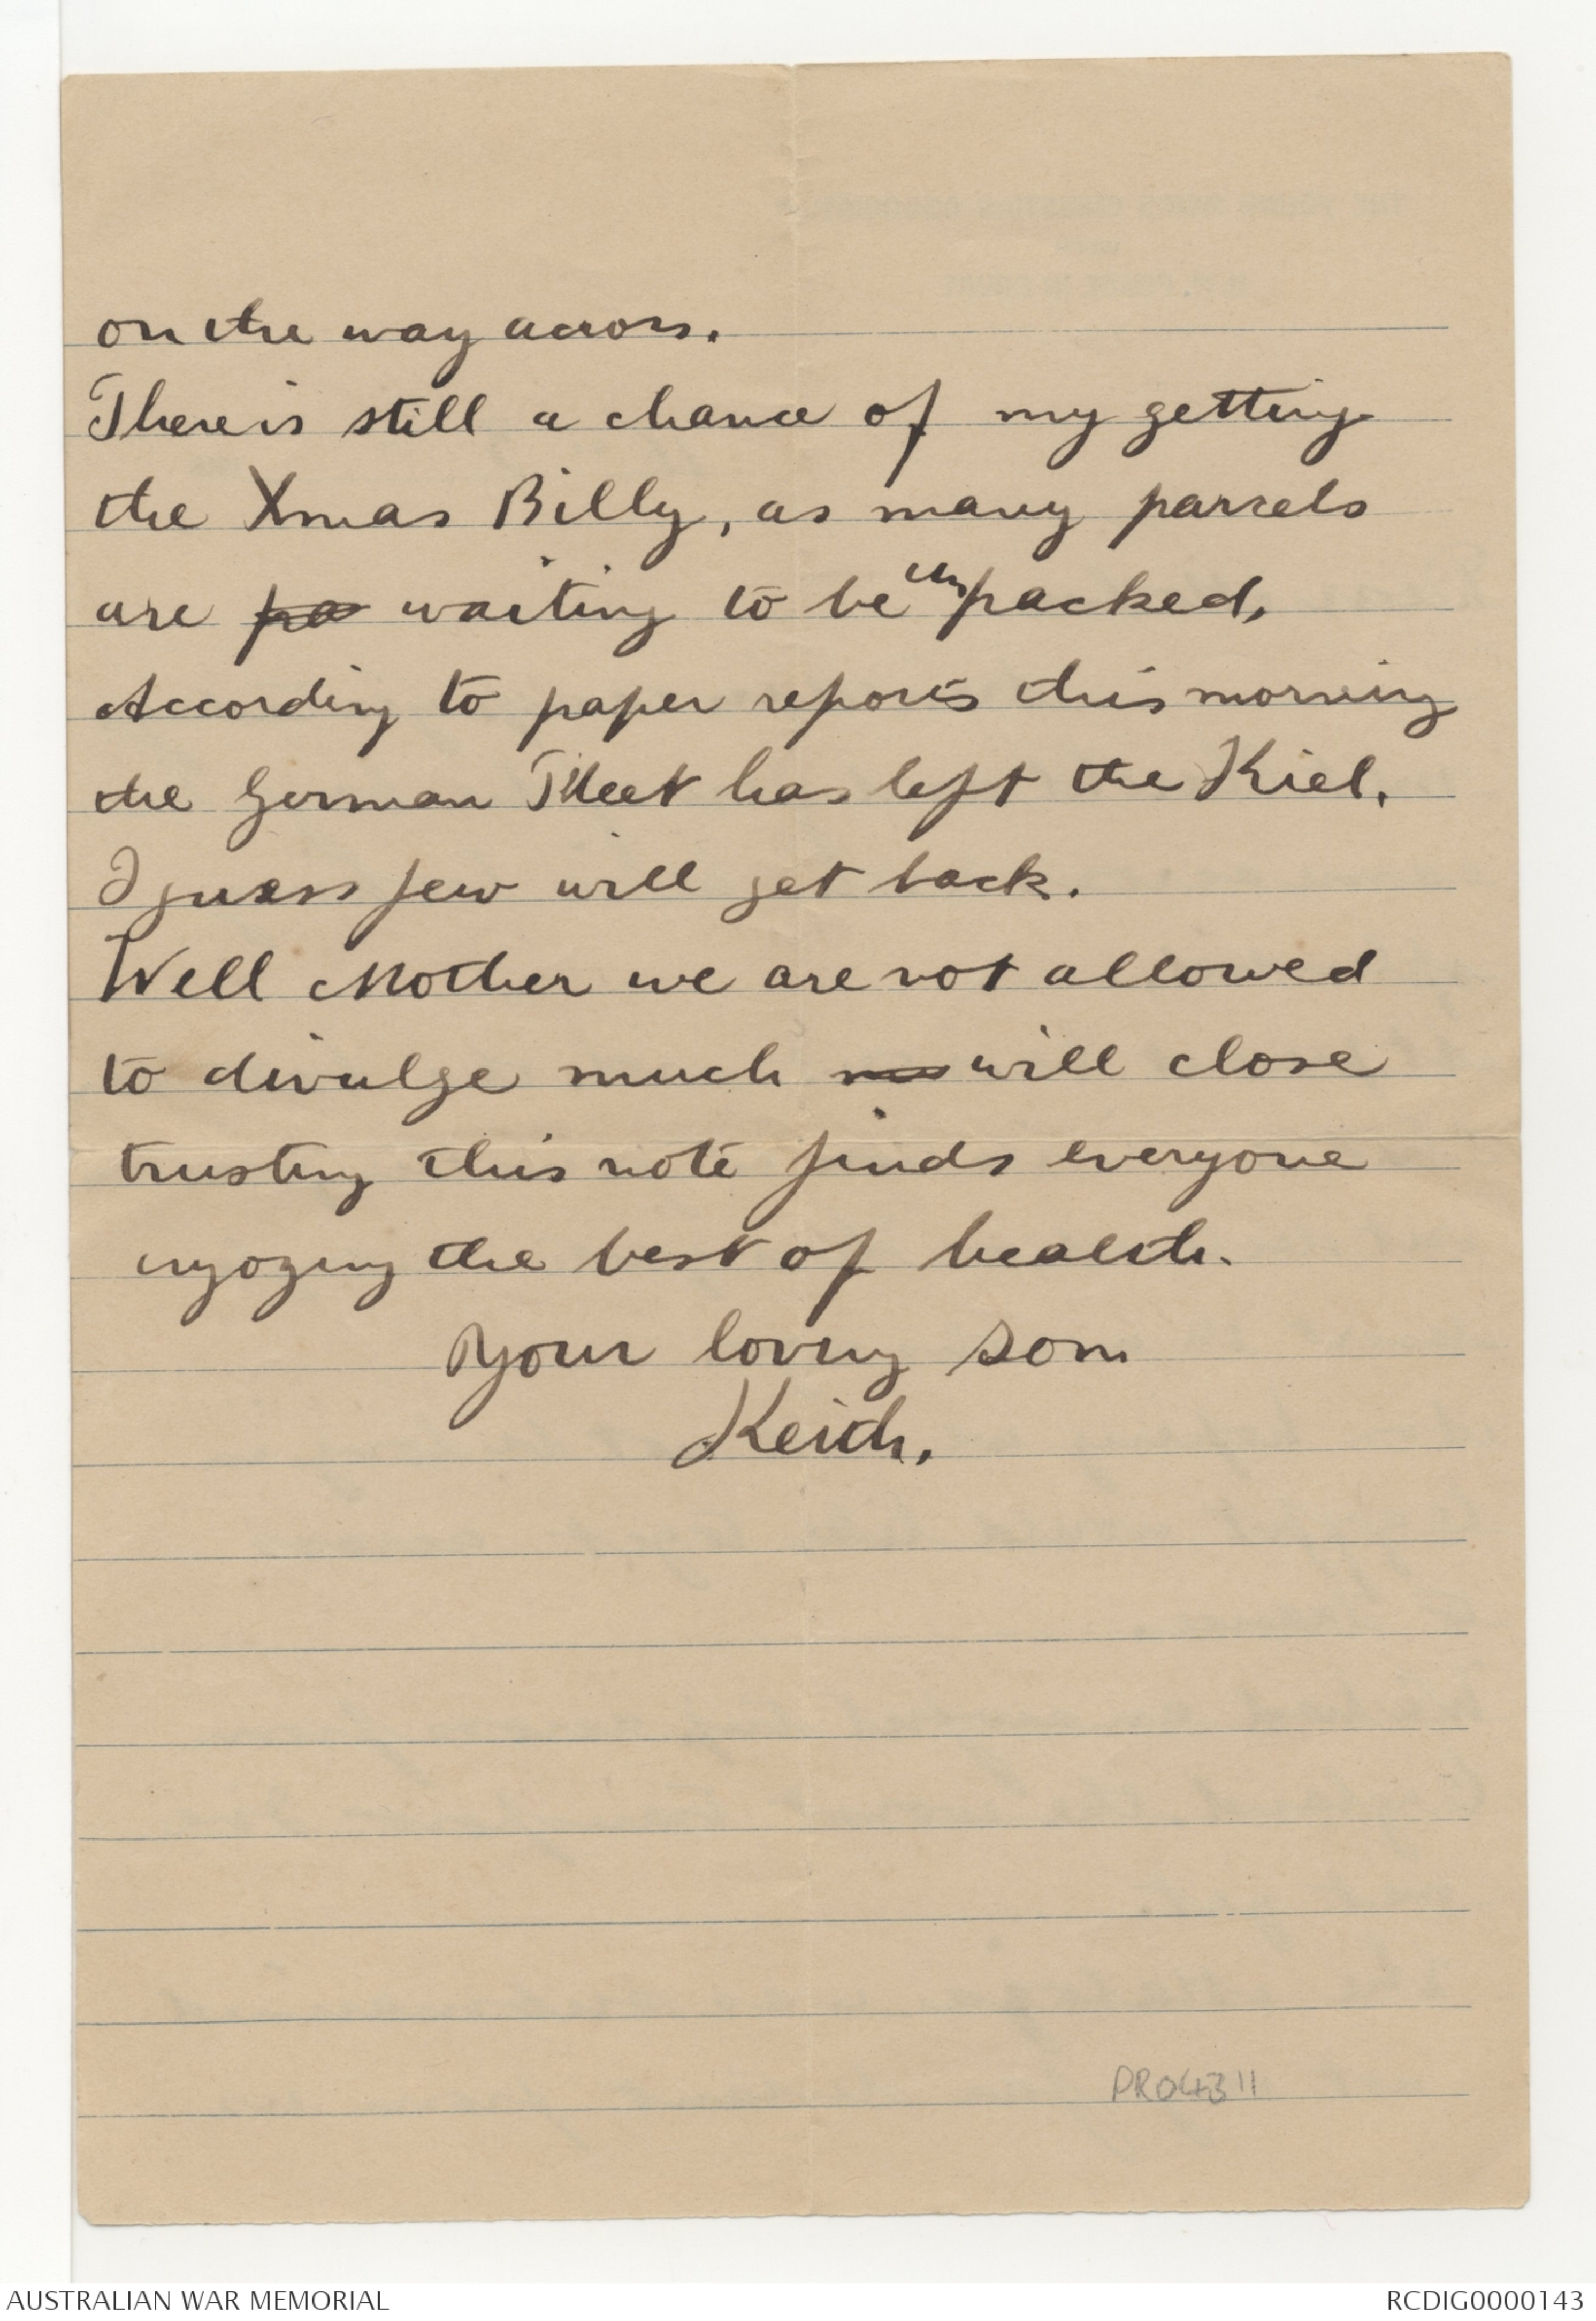 on the way across.
There is still a chance of my getting
the Xmas Billy, as many parcels
are waiting to be unpacked,
According to paper reports this morning
the German Fleet has left the Kiel.
I guess few will get back.
Well Mother we are not allowed
to divulge much will close
trusting this note finds everyone
enjoying the best of health.
Your loving son
Keith.
PR04311
AUSTRALIAN WAR MEMORIAL
RCDIG0000143